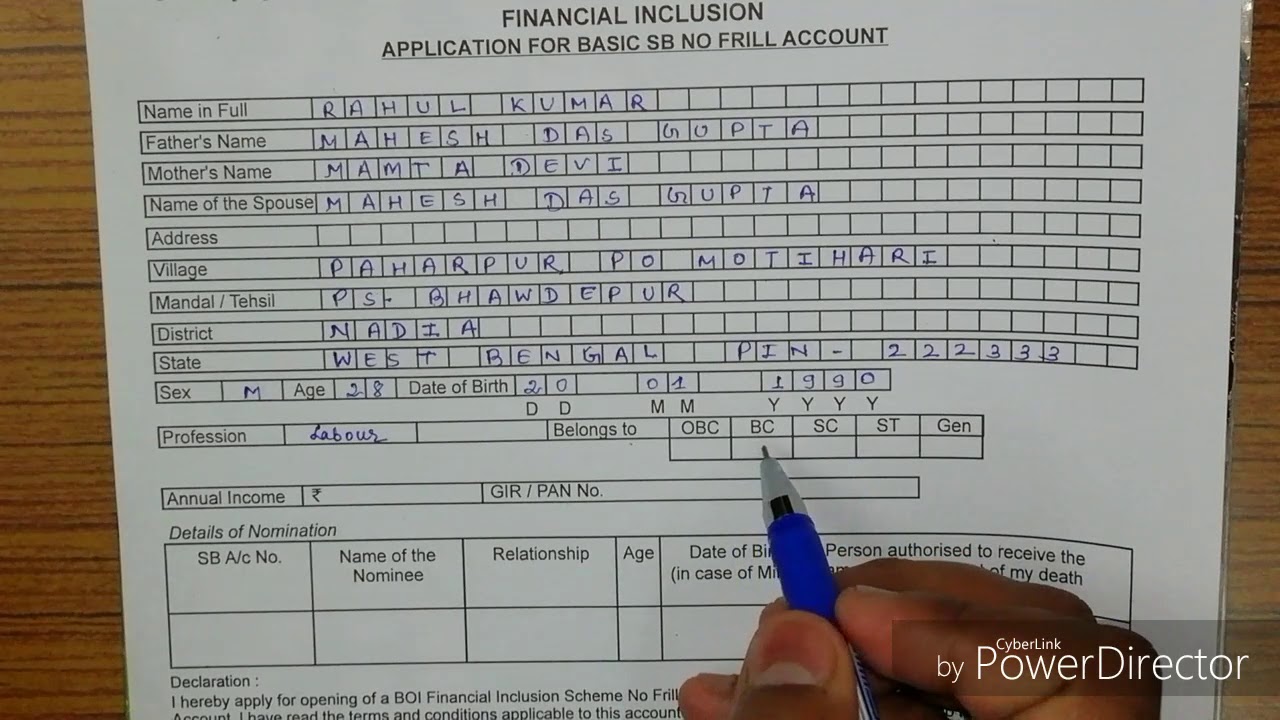 FINANCIAL INCLUSION
APPLICATION FOR BASIC SB NO FRILL ACCOUNT
Name in Full RAHUL KUMAR
Father's Name MAHESH DAS GUPTA
Mother's Name MAMTA DEVI
Name of the Spouse MAHESH DAS GUPTA
Address
Village PAHARPUR PO MOTIHARI
Mandal / Tehsil PS- BHAWDEPUR
District NADIA
State WEST BENGAL PIN - 222333
Sex M Age 28 Date of Birth 20 01 1990
D D M M Y Y Y Y
Profession Labour Belongs to OBC BC SC ST Gen
Annual Income ₹ GIR / PAN No.
Details of Nomination
SB A/c No. Name of the Nominee Relationship Age Date of Person authorised to receive the
(in case of of my death
Declaration :
I hereby apply for opening of a BOI Financial Inclusion Scheme No Frill
Account. I have read the terms and conditions applicable to this account
CyberLink
by PowerDirector